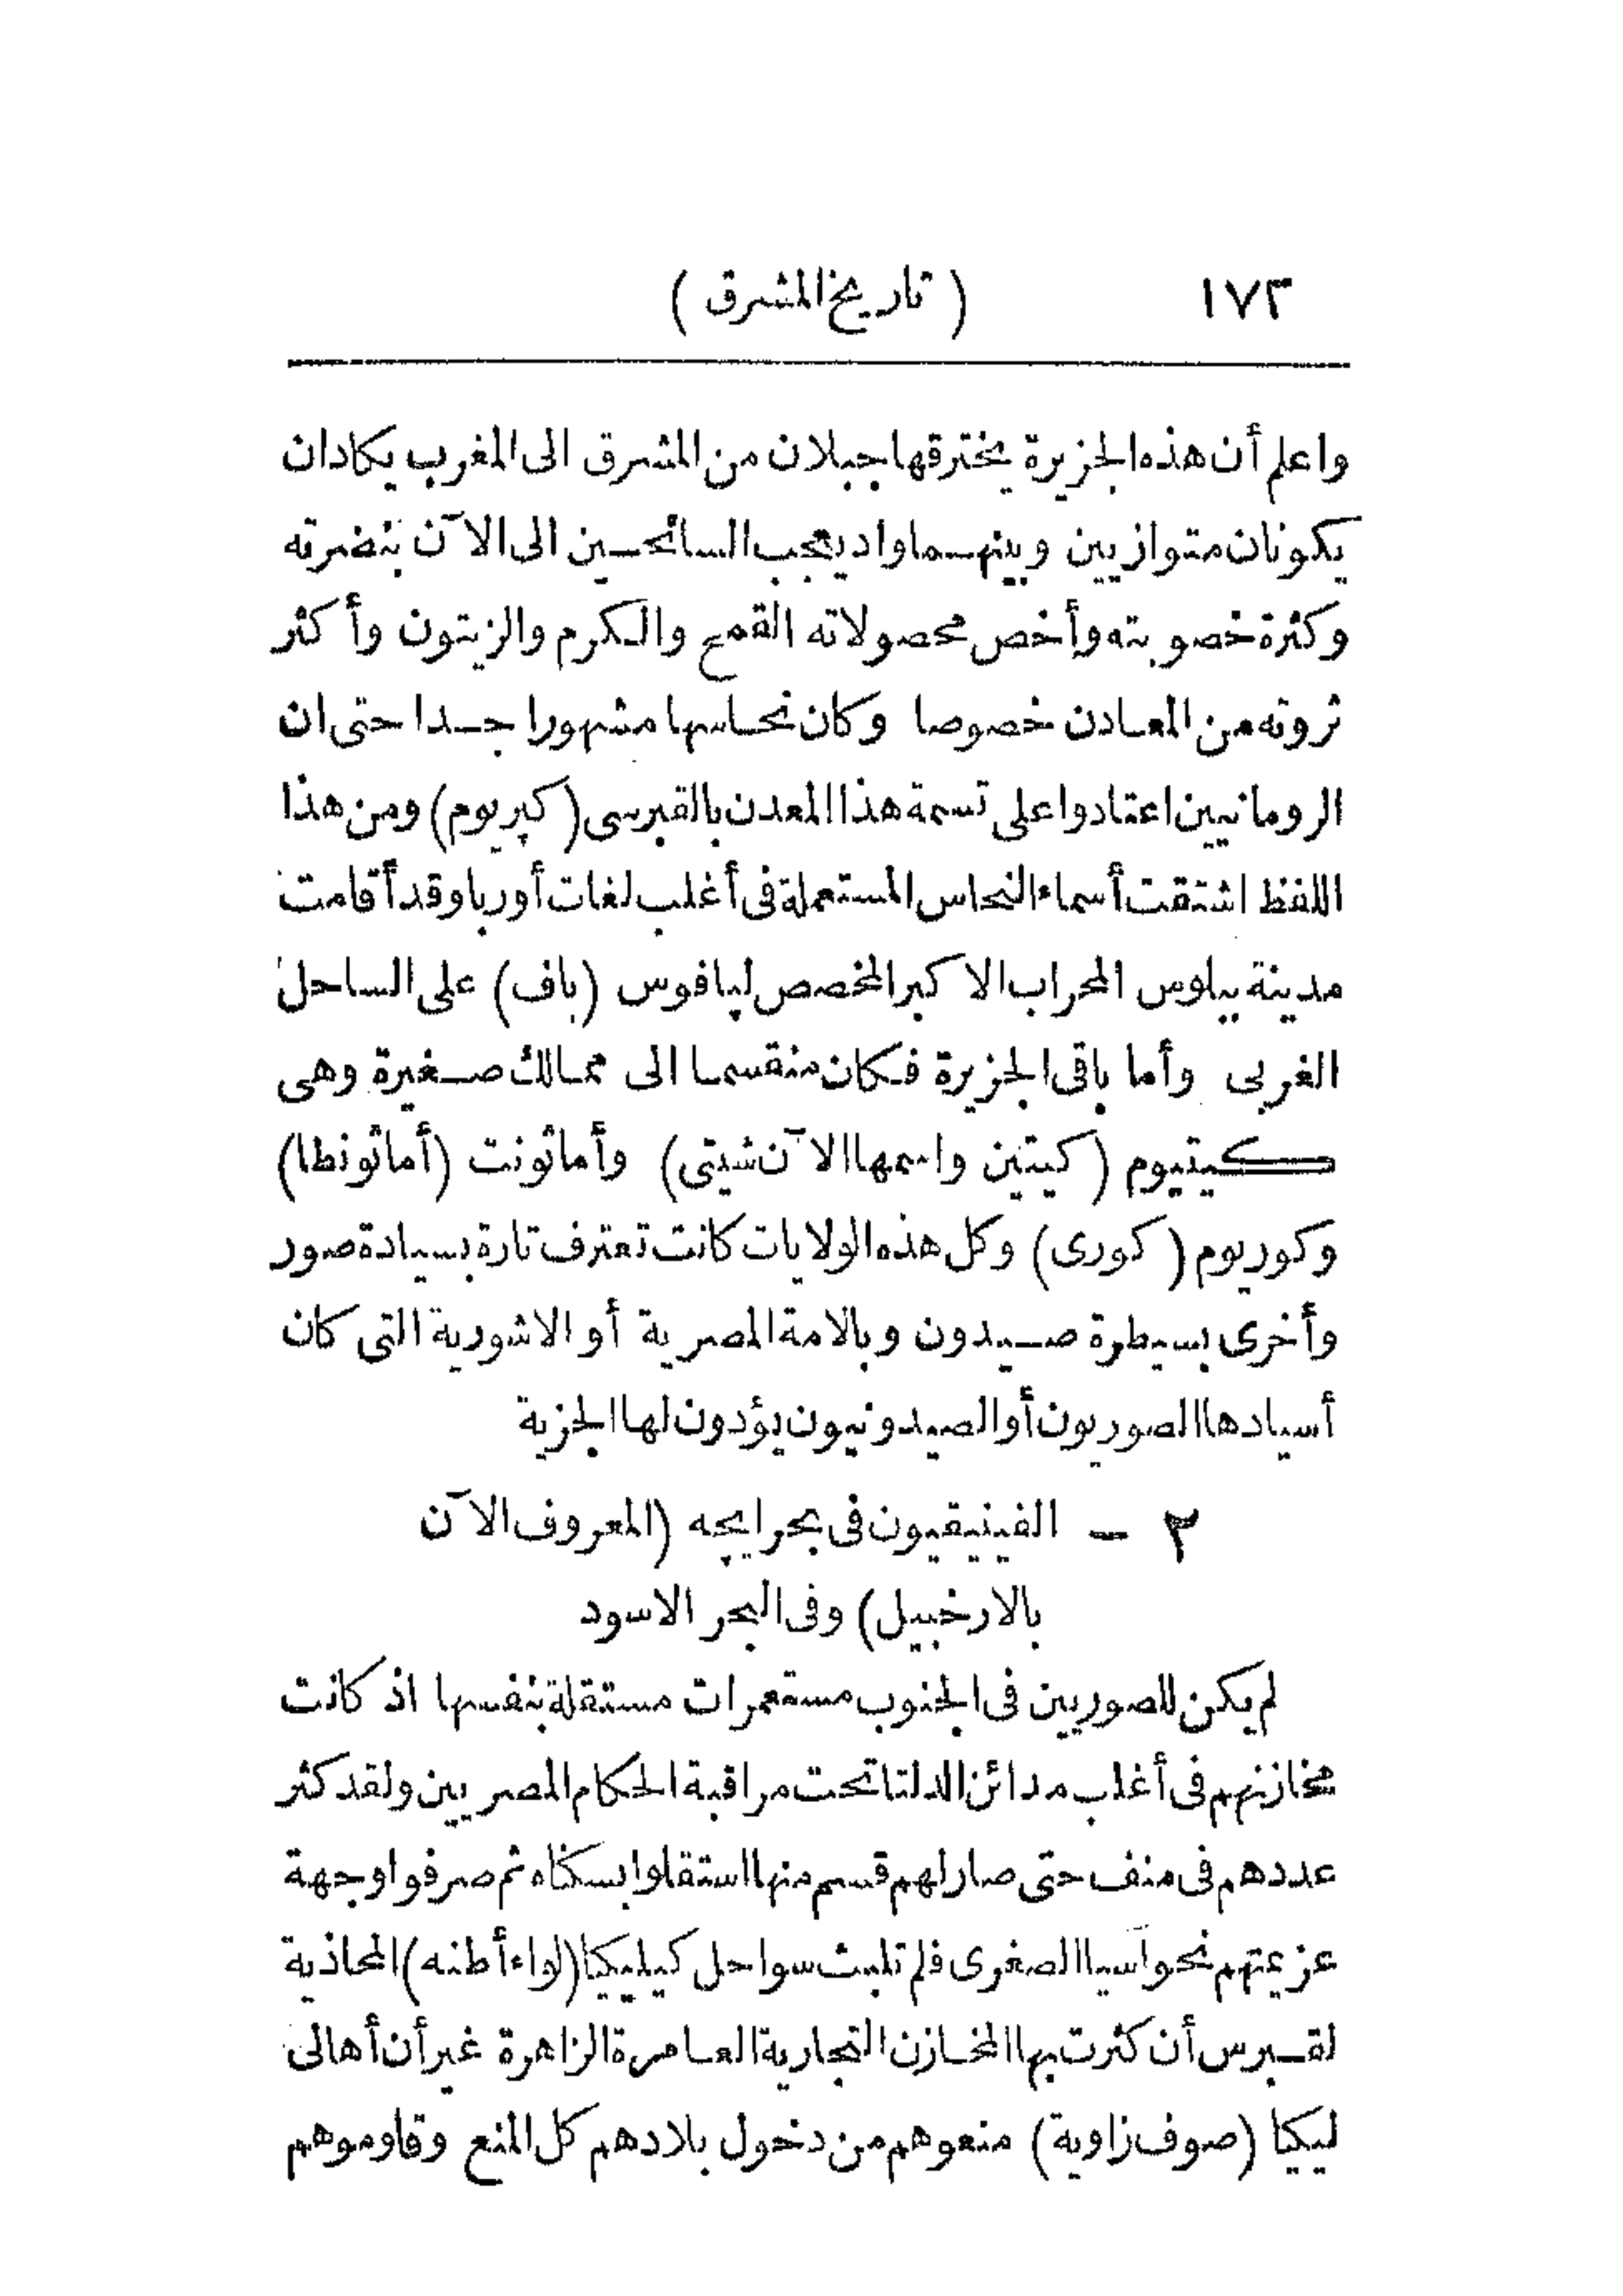 ١٧٣ ( تاريخ المشرق )
واعلم أن هذه الجزيرة يخترقها جبلان من المشرق الى المغرب يكادان
يكونان متوازيين وبينهما واد يعجب السائحين الى الآن بنضرته
وكثرة خصوبته وأخص محصولاته القمح والكرم والزيتون وأكثر
ثروته من المعادن خصوصا وكان نحاسها مشهورا جدا حتى ان
الرومانيين اعتادوا على تسمة هذا المعدن بالقبرسى (كپريوم) ومن هذا
اللفظ اشتقت أسماء النحاس المستعملة فى أغلب لغات أوربا وقد أقامت
مدينة بيلوس المحراب الاكبر المخصص لپافوس (باف) على الساحل
الغربى وأما باقى الجزيرة فكان منقسما الى ممالك صغيرة وهى
كيتيوم (كيتين واسمها الآن شيتى) وأماثونت (أماثونطا)
وكوريوم (كورى) وكل هذه الولايات كانت تعترف تارة بسيادة صور
وأخرى بسيطرة صيدون وبالامة المصرية أو الاشورية التى كان
أسيادها الصوريون أو الصيدونيون يؤدون لها الجزية
٢ – الفينيقيون فى بحر ايجه (المعروف الآن
بالارخبيل) وفى البحر الاسود
لم يكن للصوريين فى الجنوب مستعمرات مستقلة بنفسها اذ كانت
مخازنهم فى أغلب مدائن الدلتا تحت مراقبة الحكام المصريين ولقد كثر
عددهم فى منف حتى صار لهم قسم منها استقلوا بسكناه ثم صرفوا وجهة
عزيمتهم نحو آسيا الصغرى فلم تلبث سواحل كيليكيا (لواء أطنه) المحاذية
لقبرس أن كثرت بها المخازن التجارية العامرة الزاهرة غير أن أهالى
ليكيا (صوف زاوية) منعوهم من دخول بلادهم كل المنع وقاوموهم